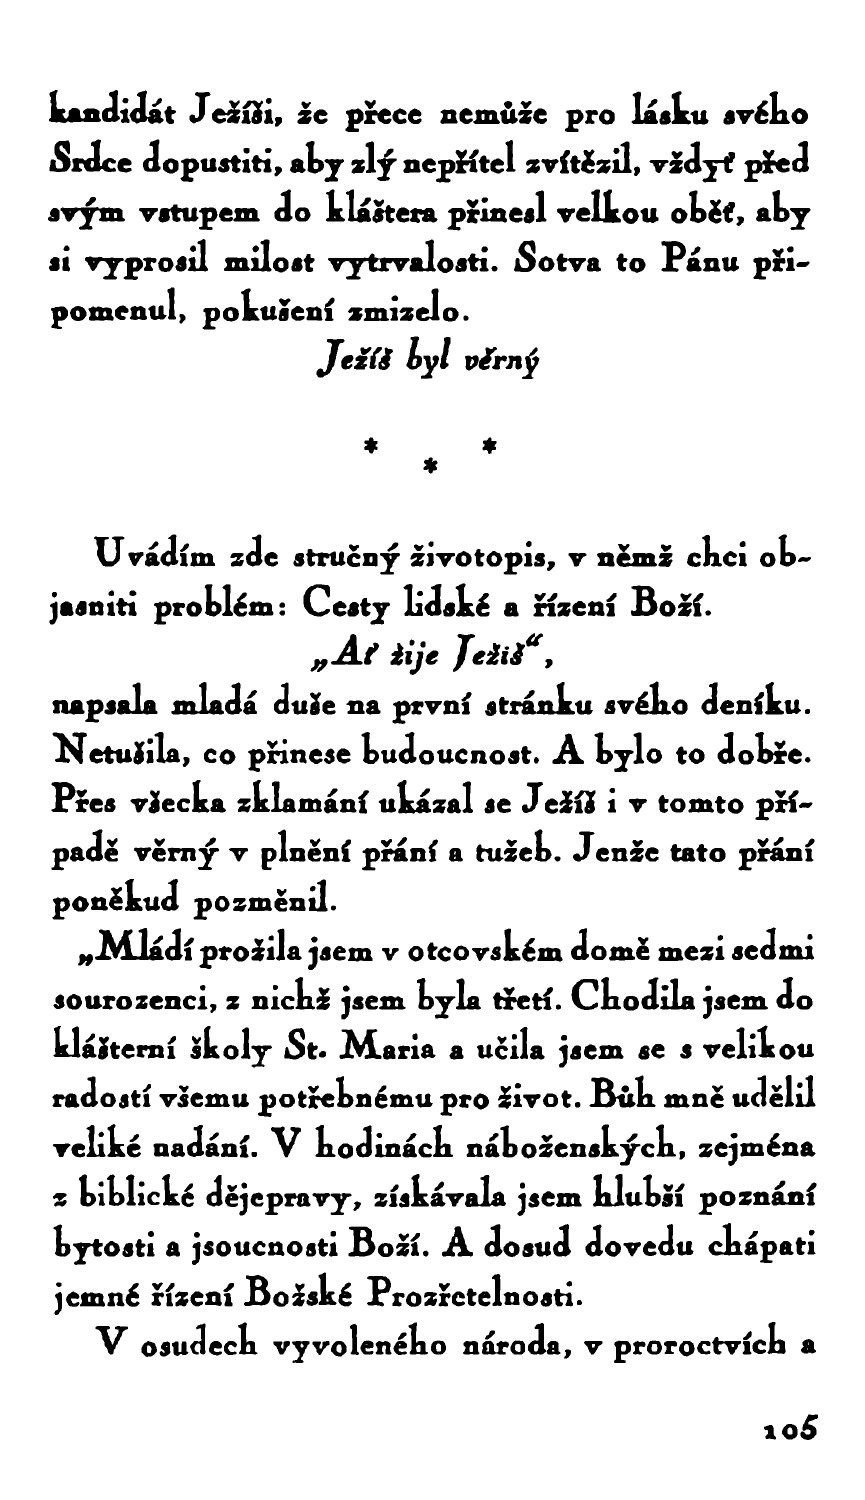 kandidát Ježíši, že přece nemůže pro lásku svého
Srdce dopustiti, aby zlý nepřítel zvítězil, vždyť před
svým vstupem do kláštera přinesl velkou oběť, aby
si vyprosil milost vytrvalosti. Sotva to Pánu při-
pomenul, pokušení zmizelo.
Ježíš byl věrný
* * *
Uvádím zde stručný životopis, v němž chci ob-
jasniti problém: Cesty lidské a řízení Boží.
„Ať žije Ježiš“,
napsala mladá duše na první stránku svého deníku.
Netušila, co přinese budoucnost. A bylo to dobře.
Přes všecka zklamání ukázal se Ježíš i v tomto pří-
padě věrný v plnění přání a tužeb. Jenže tato přání
poněkud pozměnil.
„Mládí prožila jsem v otcovském domě mezi sedmi
sourozenci, z nichž jsem byla třetí. Chodila jsem do
klášterní školy St. Maria a učila jsem se s velikou
radostí všemu potřebnému pro život. Bůh mně udělil
veliké nadání. V hodinách náboženských, zejména
z biblické dějepravy, získávala jsem hlubší poznání
bytosti a jsoucnosti Boží. A dosud dovedu chápati
jemné řízení Božské Prozřetelnosti.
V osudech vyvoleného národa, v proroctvích a
105